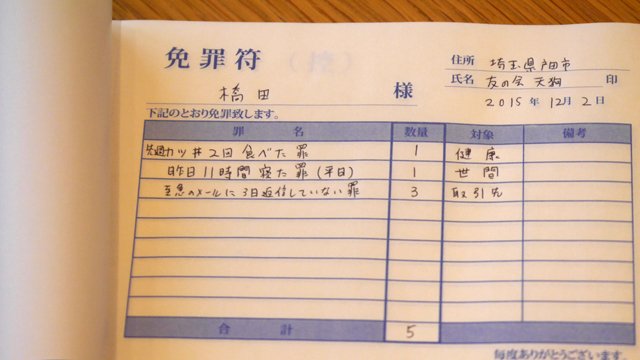 免罪符
住所 埼玉県戸田市
氏名 友の会 天狗 印
橋田 様
2015年 12月 2日
下記のとおり免罪致します。
罪名 数量 対象 備考
先週カツ丼2回食べた罪 1 健康
昨日11時間寝た罪(平日) 1 世間
至急のメールに3日返信していない罪 3 取引先
合計 5
毎度ありがとうございます。